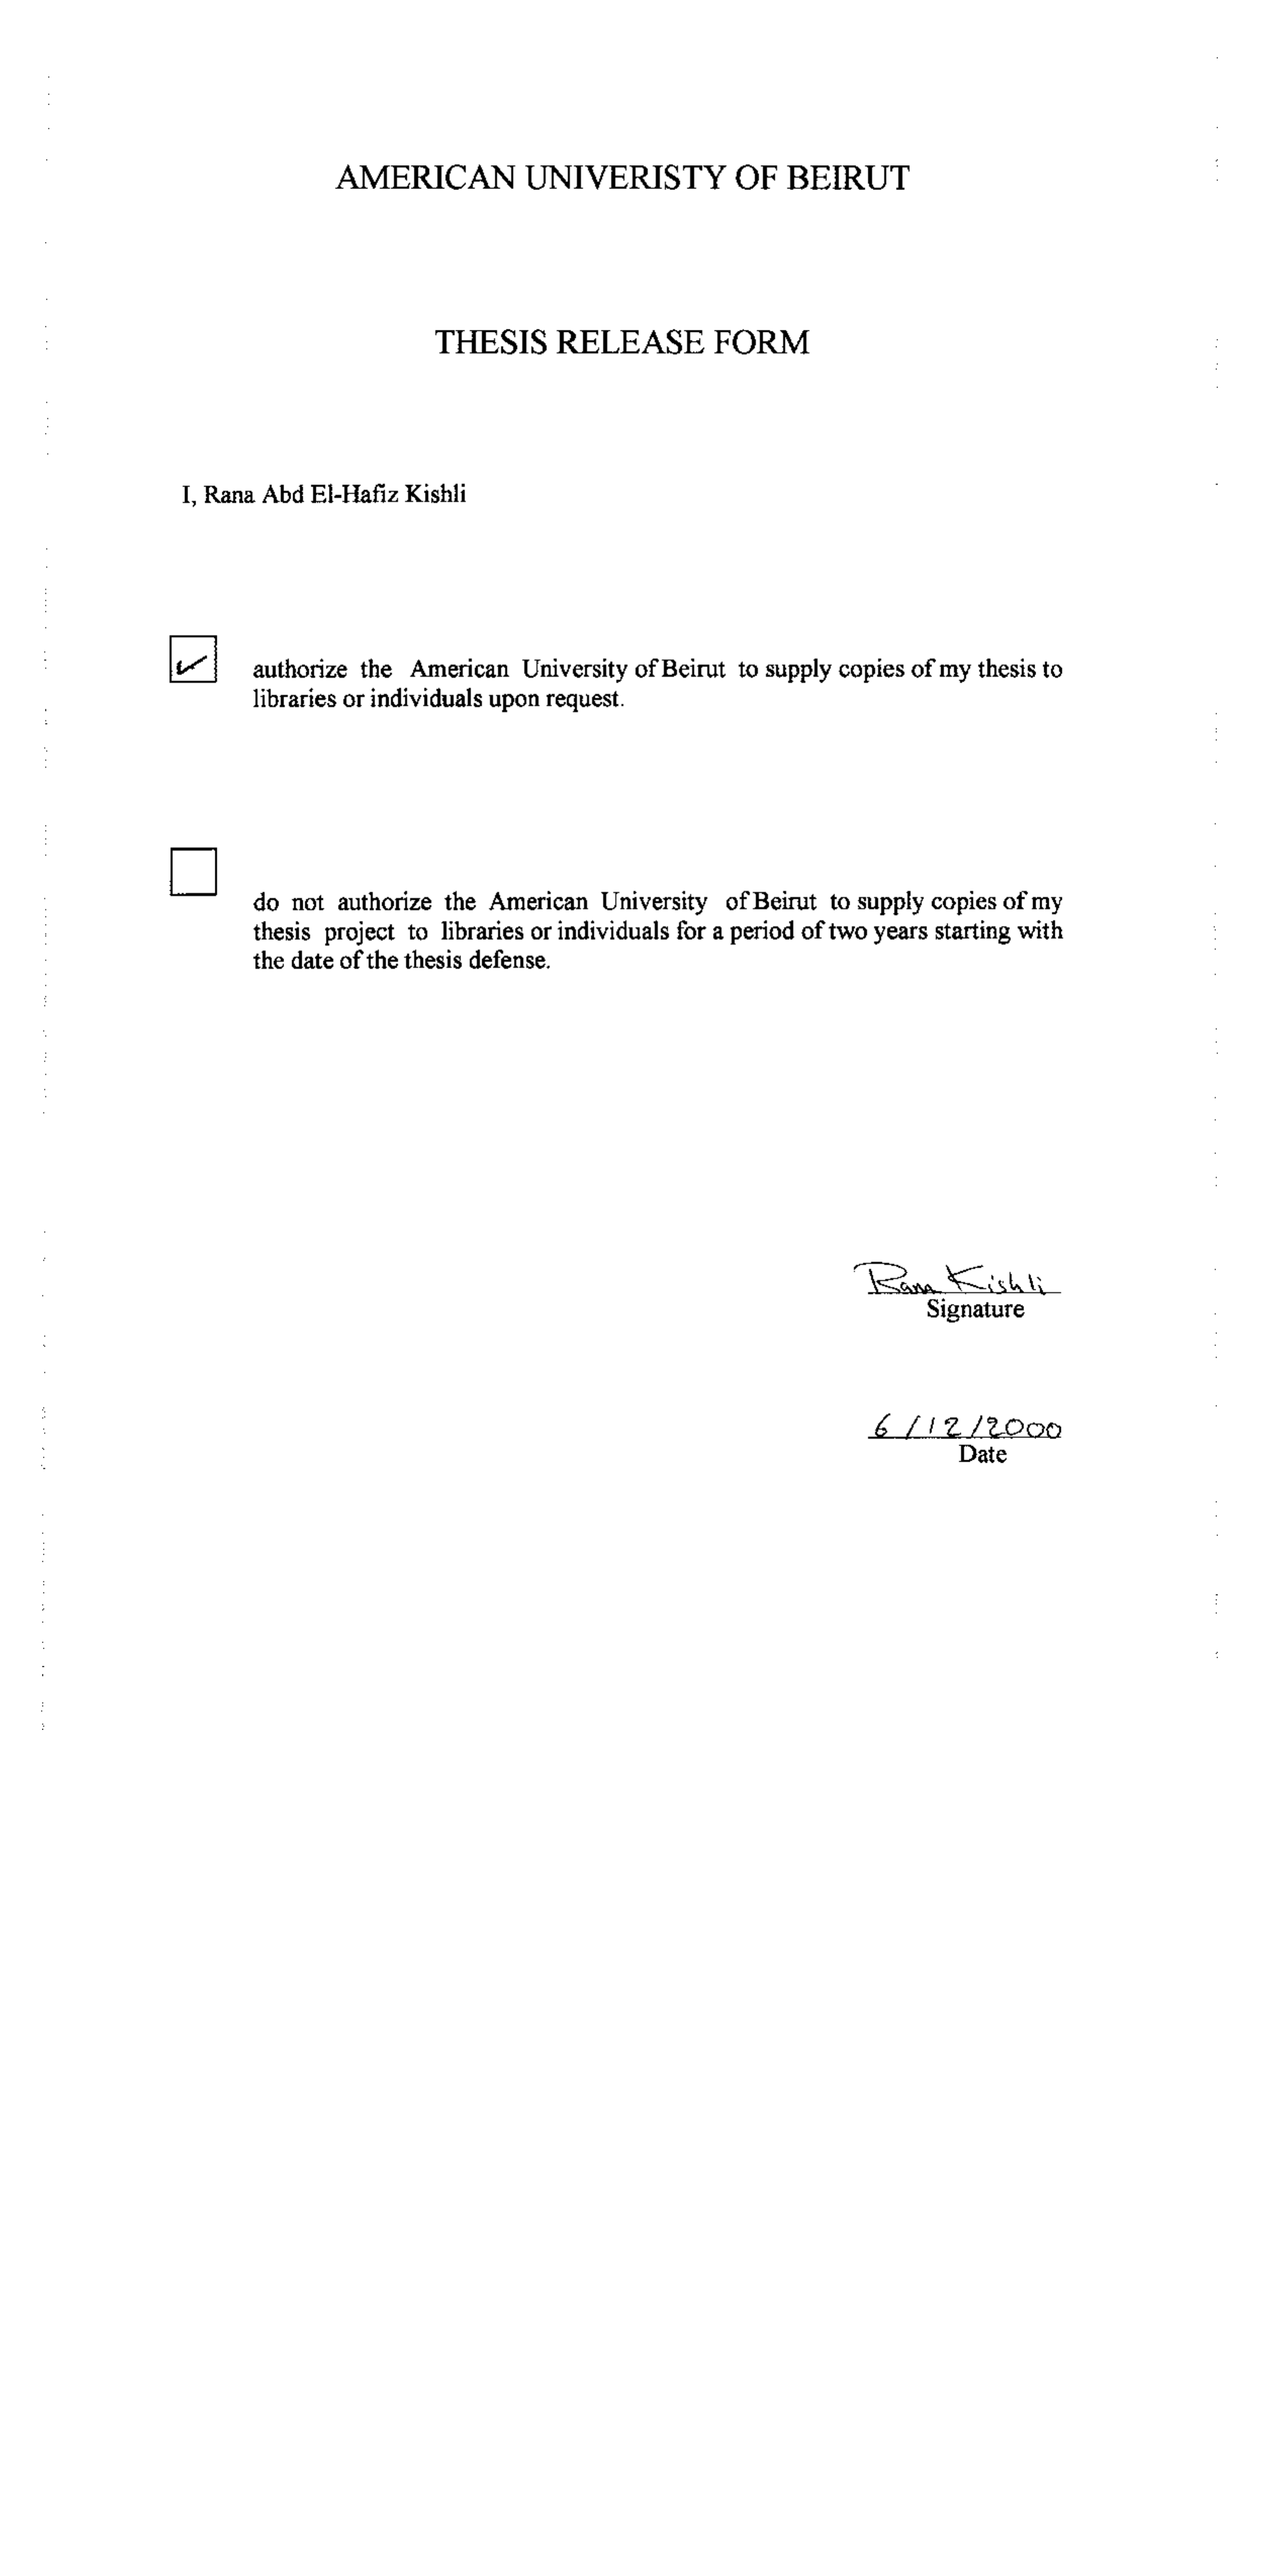 AMERICAN UNIVERISTY OF BEIRUT
THESIS RELEASE FORM
I, Rana Abd El-Hafiz Kishli
authorize the American University of Beirut to supply copies of my thesis to
libraries or individuals upon request.
do not authorize the American University of Beirut to supply copies of my
thesis project to libraries or individuals for a period of two years starting with
the date of the thesis defense.
Rana Kishli
Signature
6/12/2000
Date